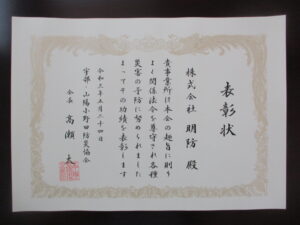 表彰状
株式会社 明防 殿
貴事業所は本会の趣旨に則り
よく関係法令を尊守され各種
災害の予防に努められました
よってその功績を表彰します
令和三年五月二十四日
宇部・山陽小野田防災協会
会長 高瀬 太